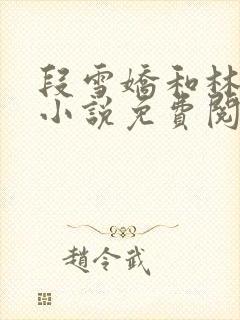 段雪嬌和林
小說免費閱
趙令武